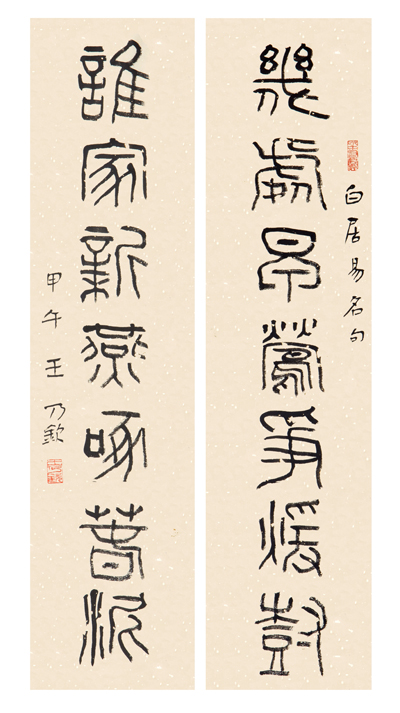 白居易名句
幾處早鶯爭煖尌
誰家新燕啄萅泥
甲午王乃欽